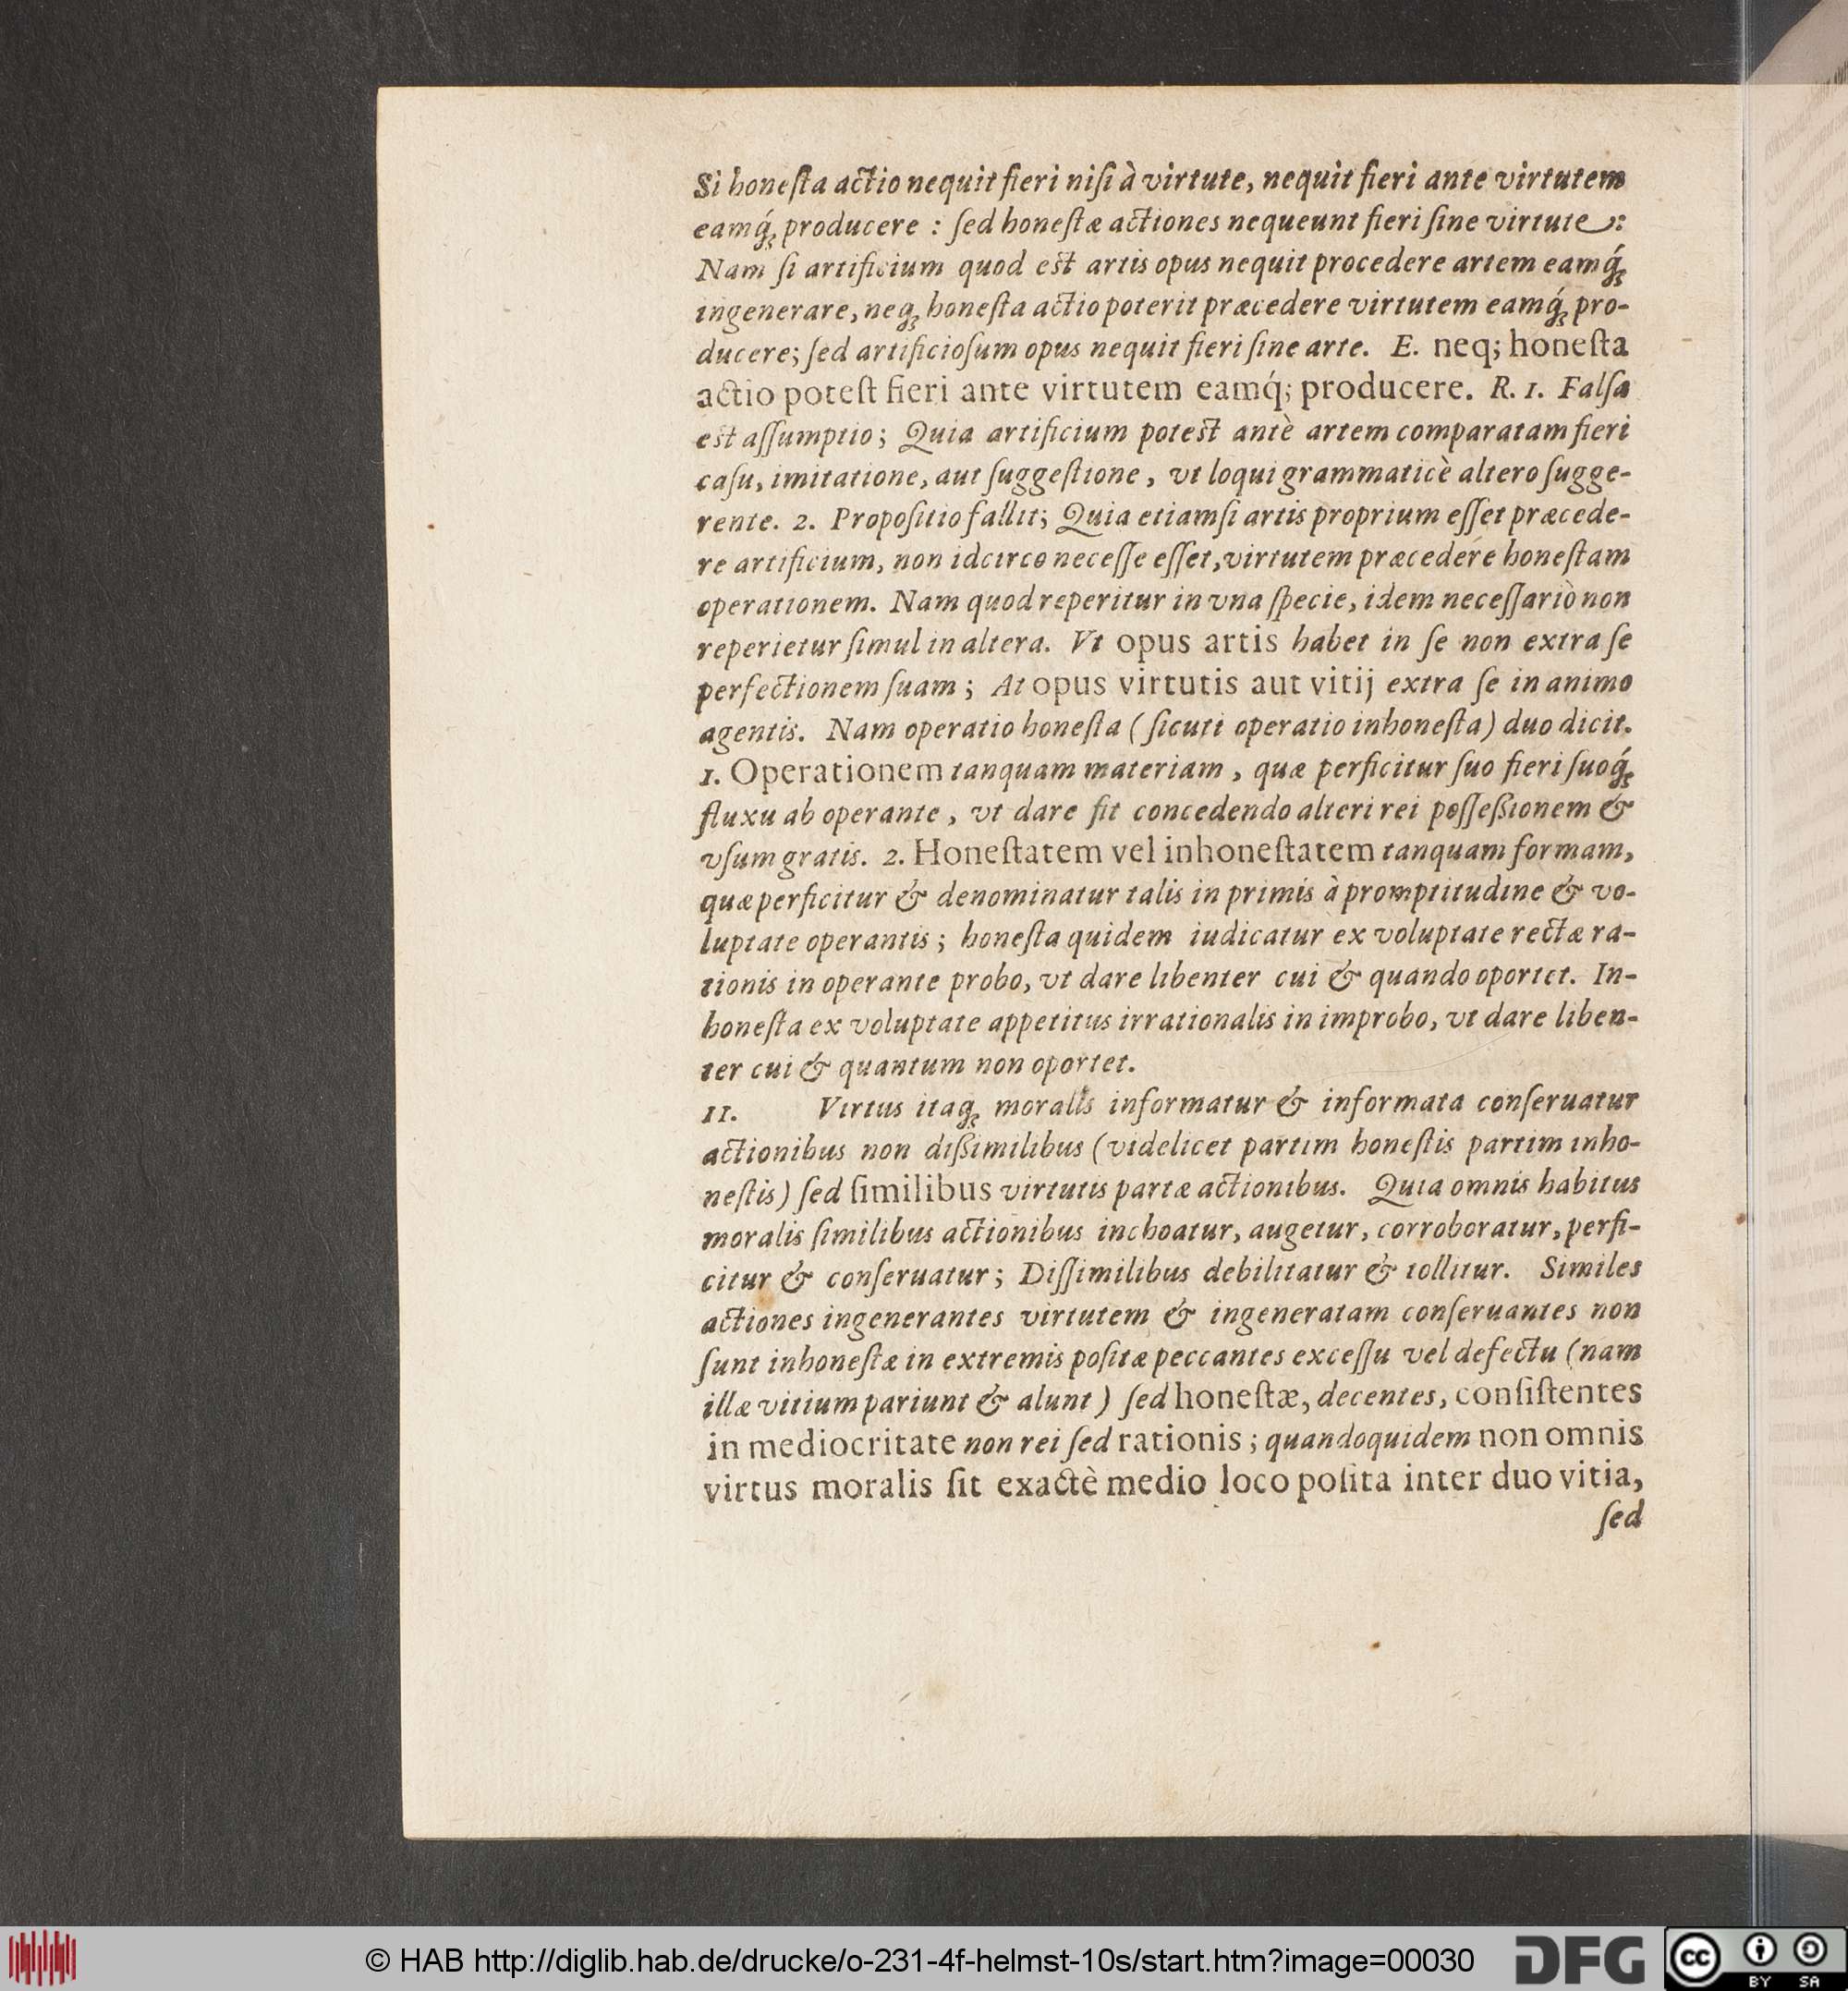 Si honeſta actio nequit fieri niſi à virtute, nequit fieri ante virtutem
eamq́ꝫ producere : ſed honeſtæ actiones nequeunt fieri ſine virtute :
Nam ſi artificium quod est artis opus nequit procedere artem eamq́ꝫ
ingenerare, neqꝫ honeſta actio poterit præcedere virtutem eamq́ꝫ pro-
ducere; ſed artificioſum opus nequit fieri ſine arte. E. neq; honeſta
actio poteſt fieri ante virtutem eamq́; producere. R. 1. Falſa
est aſſumptio; Quia artificium potest antè artem comparatam fieri
caſu, imitatione, aut ſuggeſtione, vt loqui grammaticè altero ſugge-
rente. 2. Propoſitio fallit; Quia etiamſi artis proprium eſſet præcede-
re artificium, non idcirco neceſſe eſſet, virtutem præcedere honeſtam
operationem. Nam quod reperitur in vna ſpecie, idem neceſſariò non
reperietur ſimul in altera. Vt opus artis habet in ſe non extra ſe
perfectionem ſuam; At opus virtutis aut vitij extra ſe in animo
agentis. Nam operatio honeſta (ſicuti operatio inhoneſta) duo dicit.
1. Operationem tanquam materiam, quæ perficitur ſuo fieri ſuoq́ꝫ
fluxu ab operante, vt dare fit concedendo alteri rei poſſeßionem &
vſum gratis. 2. Honeſtatem vel inhoneſtatem tanquam formam,
quæ perficitur & denominatur talis in primis à promptitudine & vo-
luptate operantis; honeſta quidem iudicatur ex voluptate rectæ ra-
tionis in operante probo, vt dare libenter cui & quando oportet. In-
honeſta ex voluptate appetitus irrationalis in improbo, vt dare liben-
ter cui & quantum non oportet.
11. Virtus itaqꝫ moralis informatur & informata conſeruatur
actionibus non dißimilibus (videlicet partim honeſtis partim inho-
neſtis) ſed ſimilibus virtutis partæ actionibus. Quia omnis habitus
moralis ſimilibus actionibus inchoatur, augetur, corroboratur, perfi-
citur & conſeruatur; Diſſimilibus debilitatur & tollitur. Similes
actiones ingenerantes virtutem & ingeneratam conſeruantes non
ſunt inhoneſtæ in extremis poſitæ peccantes exceſſu vel defectu (nam
illæ vitium pariunt & alunt) ſed honeſtæ, decentes, conſiſtentes
in mediocritate non rei ſed rationis; quandoquidem non omnis
virtus moralis ſit exactè medio loco poſita inter duo vitia,
ſed
© HAB http://diglib.hab.de/drucke/o-231-4f-helmst-10s/start.htm?image=00030
DFG
cc
BY SA